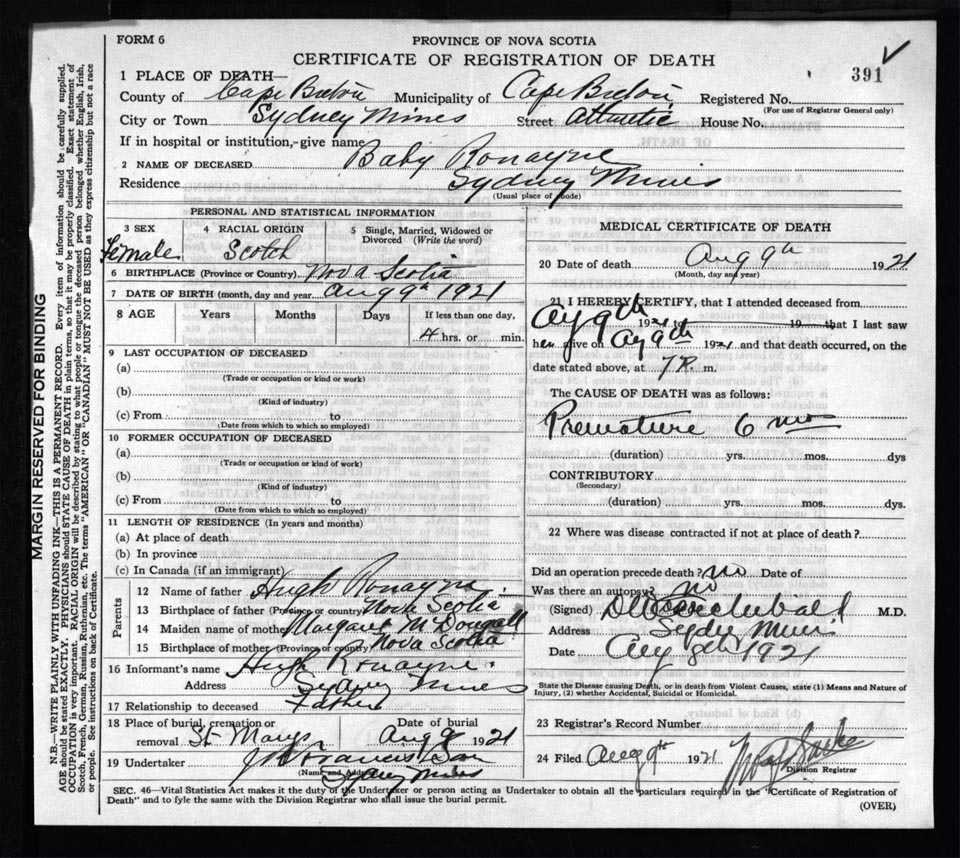 FORM 6
PROVINCE OF NOVA SCOTIA
CERTIFICATE OF REGISTRATION OF DEATH
391 ✓
1 PLACE OF DEATH—
County of Cape Breton Municipality of Cape Breton Registered No.
(For use of Registrar General only)
City or Town Sydney Mines Street Atlantic House No.
If in hospital or institution,-give name
2 NAME OF DECEASED Baby Ronayne
Residence Sydney Mines
(Usual place of abode)
PERSONAL AND STATISTICAL INFORMATION
3 SEX Female
4 RACIAL ORIGIN Scotch
5 Single, Married, Widowed or Divorced (Write the word)
6 BIRTHPLACE (Province or Country) Nova Scotia
7 DATE OF BIRTH (month, day and year Aug 9th 1921
8 AGE Years Months Days If less than one day,
4 hrs. or min.
9 LAST OCCUPATION OF DECEASED
(a)
(Trade or occupation or kind or work)
(b)
(Kind of industry)
(c) From to
(Date from which to which so employed)
10 FORMER OCCUPATION OF DECEASED
(a)
(Trade or occupation or kind of work)
(b)
(Kind of industry)
(c) From to
(Date from which to which so employed)
11 LENGTH OF RESIDENCE (In years and months)
(a) At place of death
(b) In province
(c) In Canada (if an immigrant)
Parents
12 Name of father Hugh Ronayne
13 Birthplace of father (Province or country) Nova Scotia
14 Maiden name of mother Margaret McDougall
15 Birthplace of mother (Province or country) Nova Scotia
16 Informant's name Hugh Ronayne
Address Sydney Mines
17 Relationship to deceased Father
18 Place of burial, cremation or removal St Marys Date of burial Aug 9 1921
19 Undertaker J H Francis Son
(Name and Address)
Sydney Mines
MEDICAL CERTIFICATE OF DEATH
20 Date of death Aug 9th 1921
(Month, day and year)
21 I HEREBY CERTIFY, that I attended deceased from
Aug 9th 1921 19 that I last saw
her alive on Aug 9th 1921 and that death occurred, on the
date stated above, at 7 P. m.
The CAUSE OF DEATH was as follows:
Premature 6 mo
(duration) yrs. mos. dys
CONTRIBUTORY
(Secondary)
(duration) yrs. mos. dys.
22 Where was disease contracted if not at place of death?
Did an operation precede death? no Date of
Was there an autopsy? no
(Signed) Archibald M.D.
Address Sydney Mines
Date Aug 8th 1921
State the Disease causing Death, or in death from Violent Causes, state (1) Means and Nature of
Injury, (2) whether Accidental, Suicidal or Homicidal.
23 Registrar's Record Number
24 Filed Aug 9th 1921
Division Registrar
SEC. 46—Vital Statistics Act makes it the duty of the Undertaker or person acting as Undertaker to obtain all the particulars required in the "Certificate of Registration of
Death" and to fyle the same with the Division Registrar who shall issue the burial permit.
(OVER)
MARGIN RESERVED FOR BINDING
N.B.—WRITE PLAINLY WITH UNFADING INK—THIS IS A PERMANENT RECORD. Every item of information should be carefully supplied.
AGE should be stated EXACTLY. PHYSICIANS should STATE CAUSE OF DEATH in plain terms, so that it may be properly classified. Exact statement of
OCCUPATION is very important. RACIAL ORIGIN will be described by stating to what people or tongue the deceased person belonged whether English, Irish,
Scotch, French, German, Russian, Ruthenian, etc. The terms "AMERICAN" OR "CANADIAN" MUST NOT BE USED as they express citizenship but not a race
or people. See instructions on back of Certificate.